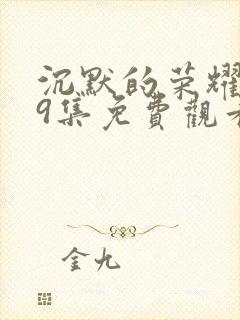 沉默的荣耀
9集免費觀看
金九